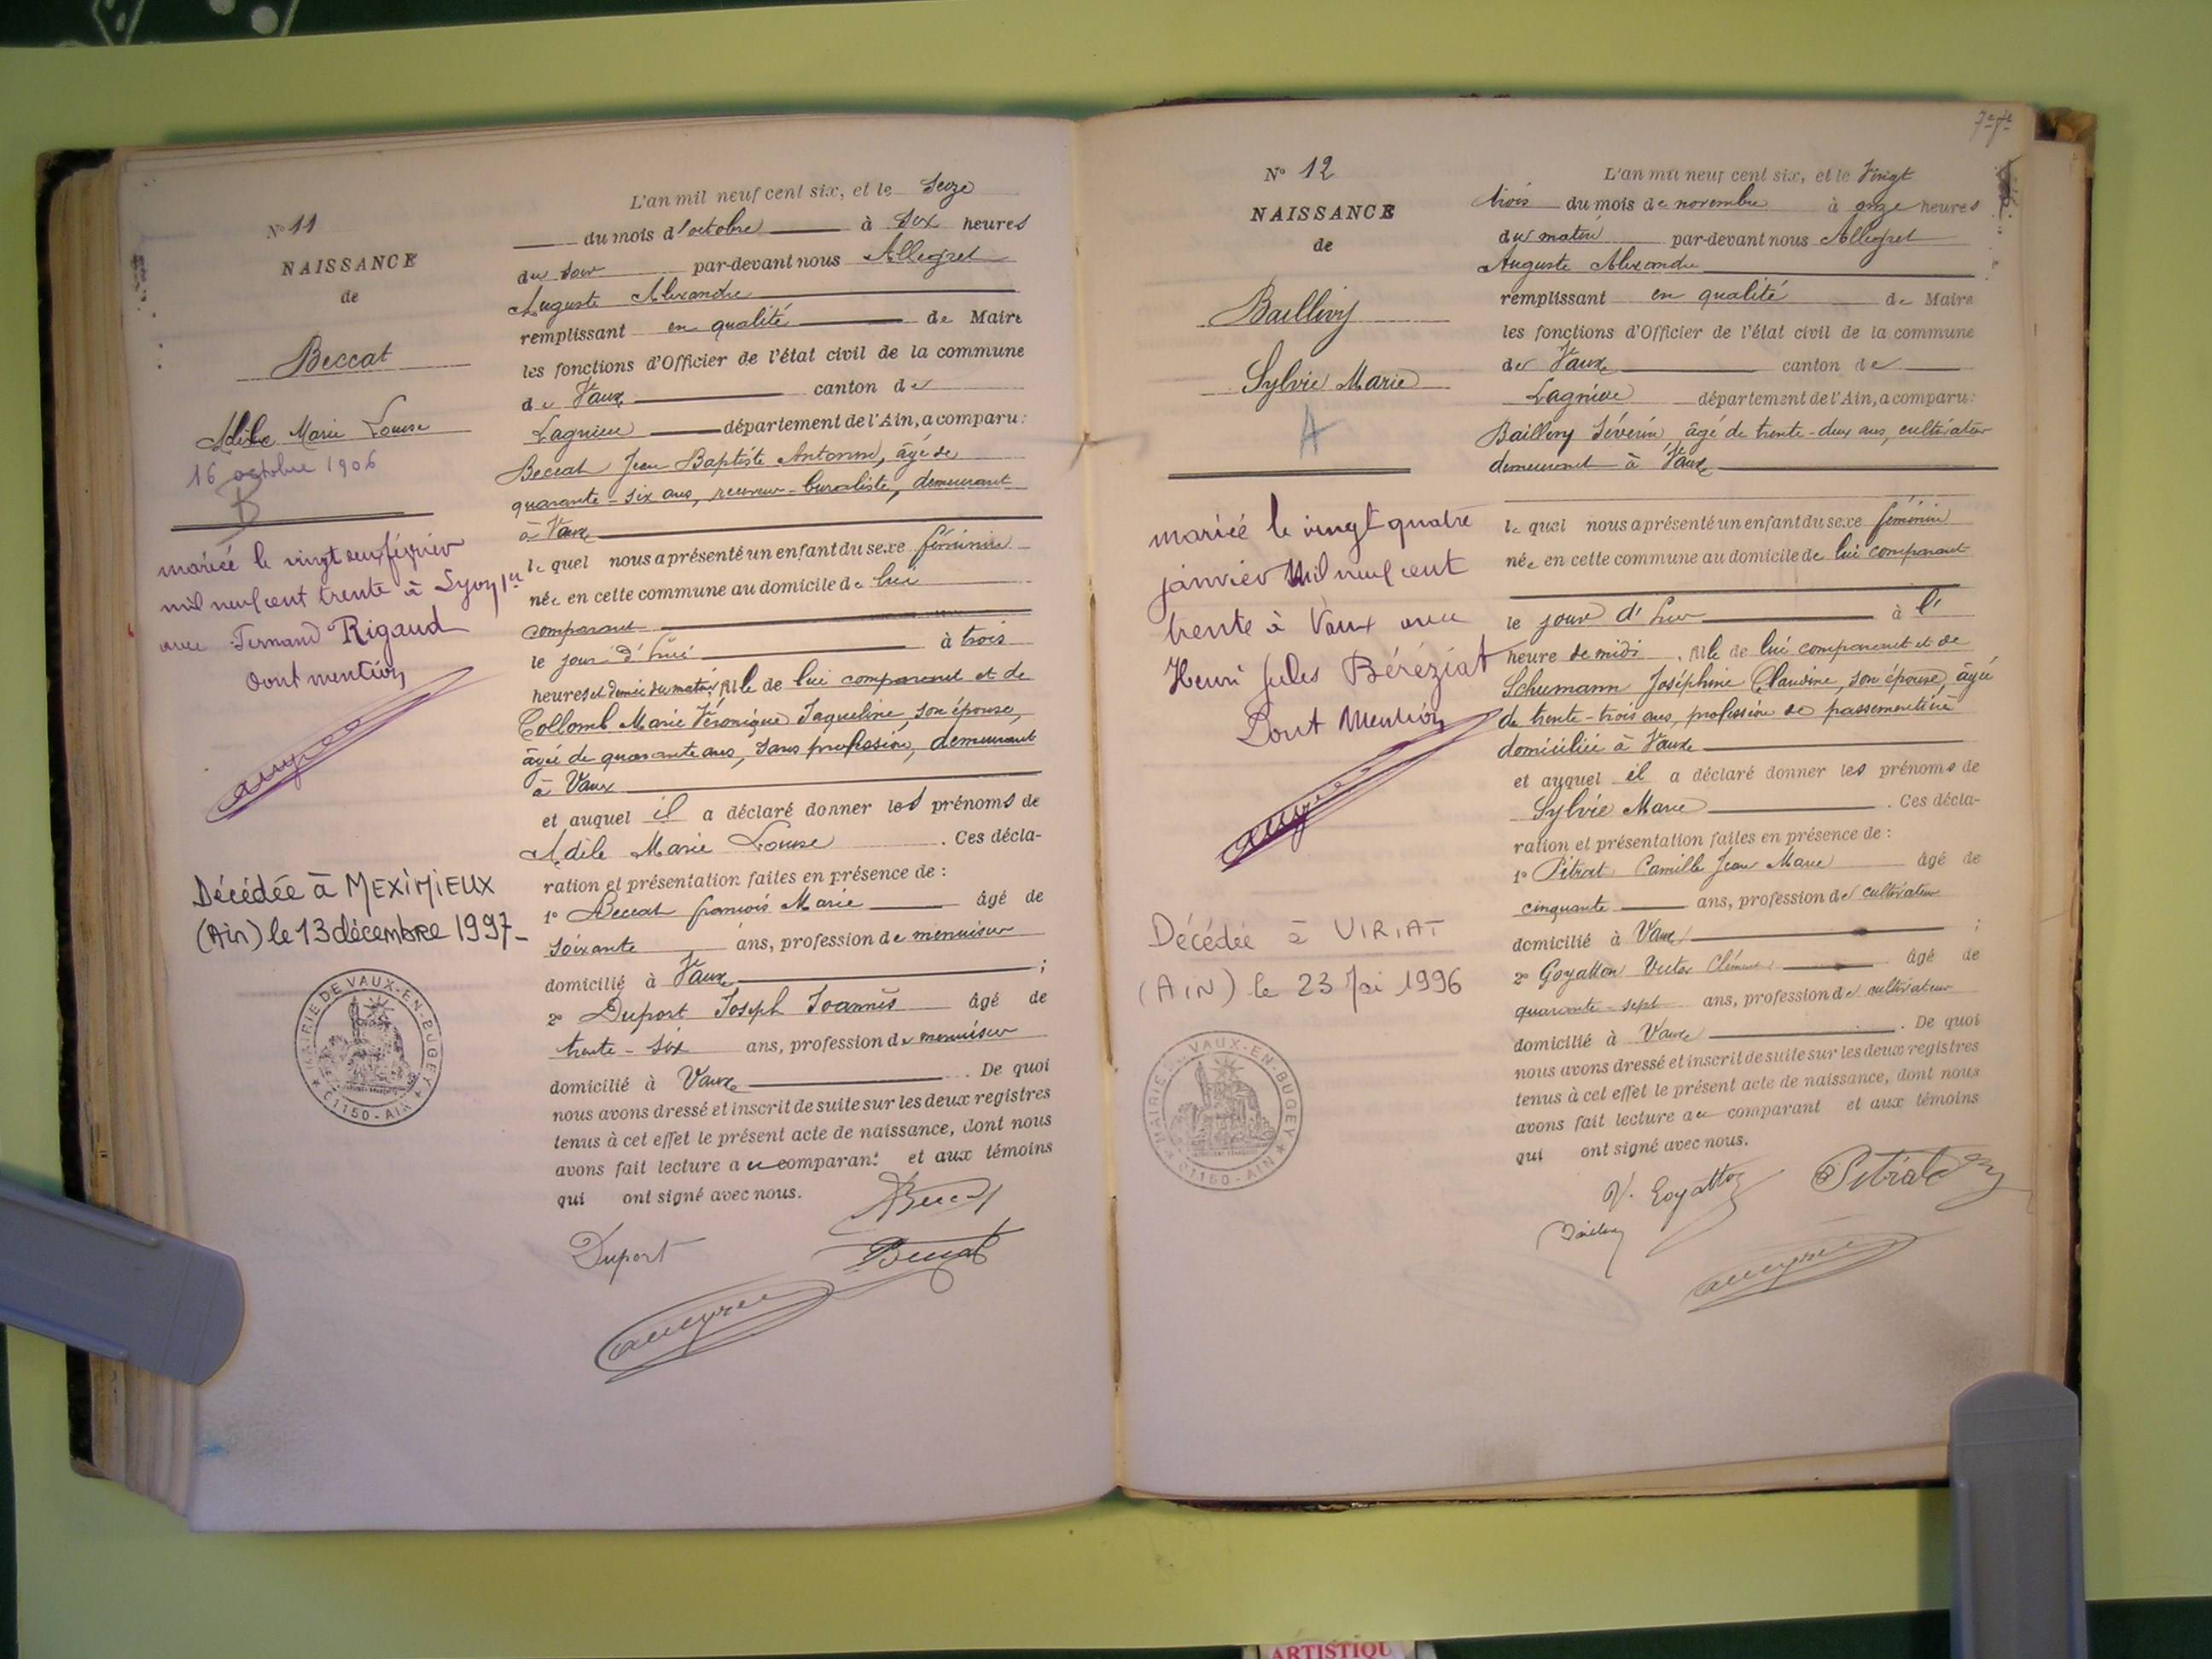 N° 11
NAISSANCE
de
Beccat
Adèle Marie Louise
16 octobre 1906
B
mariée le vingt deux février
mil neuf cent trente à Lyon 1er
avec Fernand Rigaud
dont mention
Décédée à MEXIMIEUX
(Ain) le 13 décembre 1997
MAIRIE DE VAUX-EN-BUGEY
01150 - AIN
L'an mil neuf cent six, et le Seize
du mois d'octobre à Six heures
du soir par-devant nous Allegret
Auguste Alexandre
remplissant en qualité de Maire
les fonctions d'Officier de l'état civil de la commune
de Vaux canton de
Lagnieu département de l'Ain, a comparu:
Beccat Jean Baptiste Antonin, âgé de
quarante-six ans, receveur-buraliste, demeurant
à Vaux
lequel nous a présenté un enfant du sexe féminin
née en cette commune au domicile de lui
comparant
le jour d'hui à trois
heures et demie du matin, fille de lui comparant et de
Collomb Marie Véronique Jaqueline, son épouse,
âgée de quarante ans, sans profession, demeurant
à Vaux
et auquel il a déclaré donner les prénoms de
Adèle Marie Louise. Ces décla-
ration et présentation faites en présence de :
1° Beccat françois Marie âgé de
soixante ans, profession de menuisier
domicilié à Vaux ;
2° Duport Joseph Joannès âgé de
trente-six ans, profession de menuisier
domicilié à Vaux. De quoi
nous avons dressé et inscrit de suite sur les deux registres
tenus à cet effet le présent acte de naissance, dont nous
avons fait lecture au comparant et aux témoins
qui ont signé avec nous.
Beccat
Duport Beccat
N° 12
NAISSANCE
de
Baillivy
Sylvie Marie
A
mariée le vingt quatre
janvier Mil neuf cent
trente à Vaux avec
Henri Jules Béréziat
Dont Mention
Décédée à VIRIAT
(AIN) le 23 Mai 1996
MAIRIE VAUX-EN-BUGEY
01150 - AIN
L'an mil neuf cent six, et le Vingt
trois du mois de novembre à onze heures
du matin par-devant nous Allegret
Auguste Alexandre
remplissant en qualité de Maire
les fonctions d'Officier de l'état civil de la commune
de Vaux canton de
Lagnieu département de l'Ain, a comparu:
Baillivy Séverin, âgé de trente-deux ans, cultivateur
demeurant à Vaux
lequel nous a présenté un enfant du sexe féminin
née en cette commune au domicile de lui comparant
le jour d'hier à l'
heure de midi, fille de lui comparant et de
Schumann Joséphine Claudine, son épouse, âgée
de trente-trois ans, profession de passementière
domiciliée à Vaux
et auquel il a déclaré donner les prénoms de
Sylvie Marie. Ces décla-
ration et présentation faites en présence de :
1° Pitrat Camille Jean Marie âgé de
cinquante ans, profession de cultivateur
domicilié à Vaux ;
2° Goyatton Victor Clément âgé de
quarante-sept ans, profession de cultivateur
domicilié à Vaux. De quoi
nous avons dressé et inscrit de suite sur les deux registres
tenus à cet effet le présent acte de naissance, dont nous
avons fait lecture au comparant et aux témoins
qui ont signé avec nous.
V. Goyatton Pitrat
ARTISTIQU